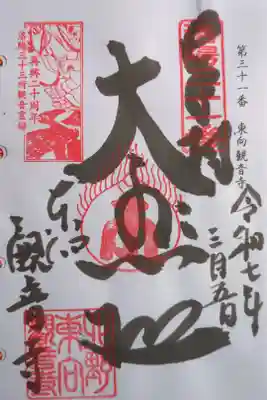 第三十一番 東向観音寺
令和七年
三月五日
大悲殿
観音寺
再興二十周年
洛陽三十三所観音霊場
北野
東向
観音寺